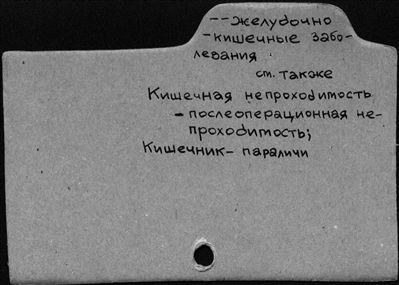 --Желудочно
-кишечные забо-
левания
см. также
Кишечная непроходимость
- послеоперационная не-
проходимость;
Кишечник- параличи